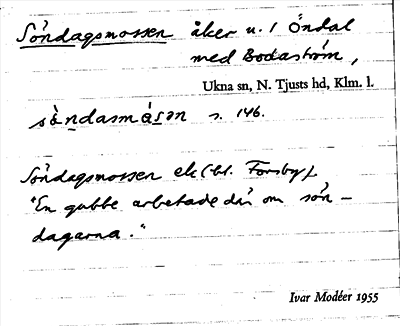 Söndagsmossen åker u. / Öndal
med Bodaström,
Ukna sn, N. Tjusts hd, Klm. l.
s. 146.
Söndagsmossen
"En gubbe arbetade där om sön-
dagarna."
Ivar Modéer 1955